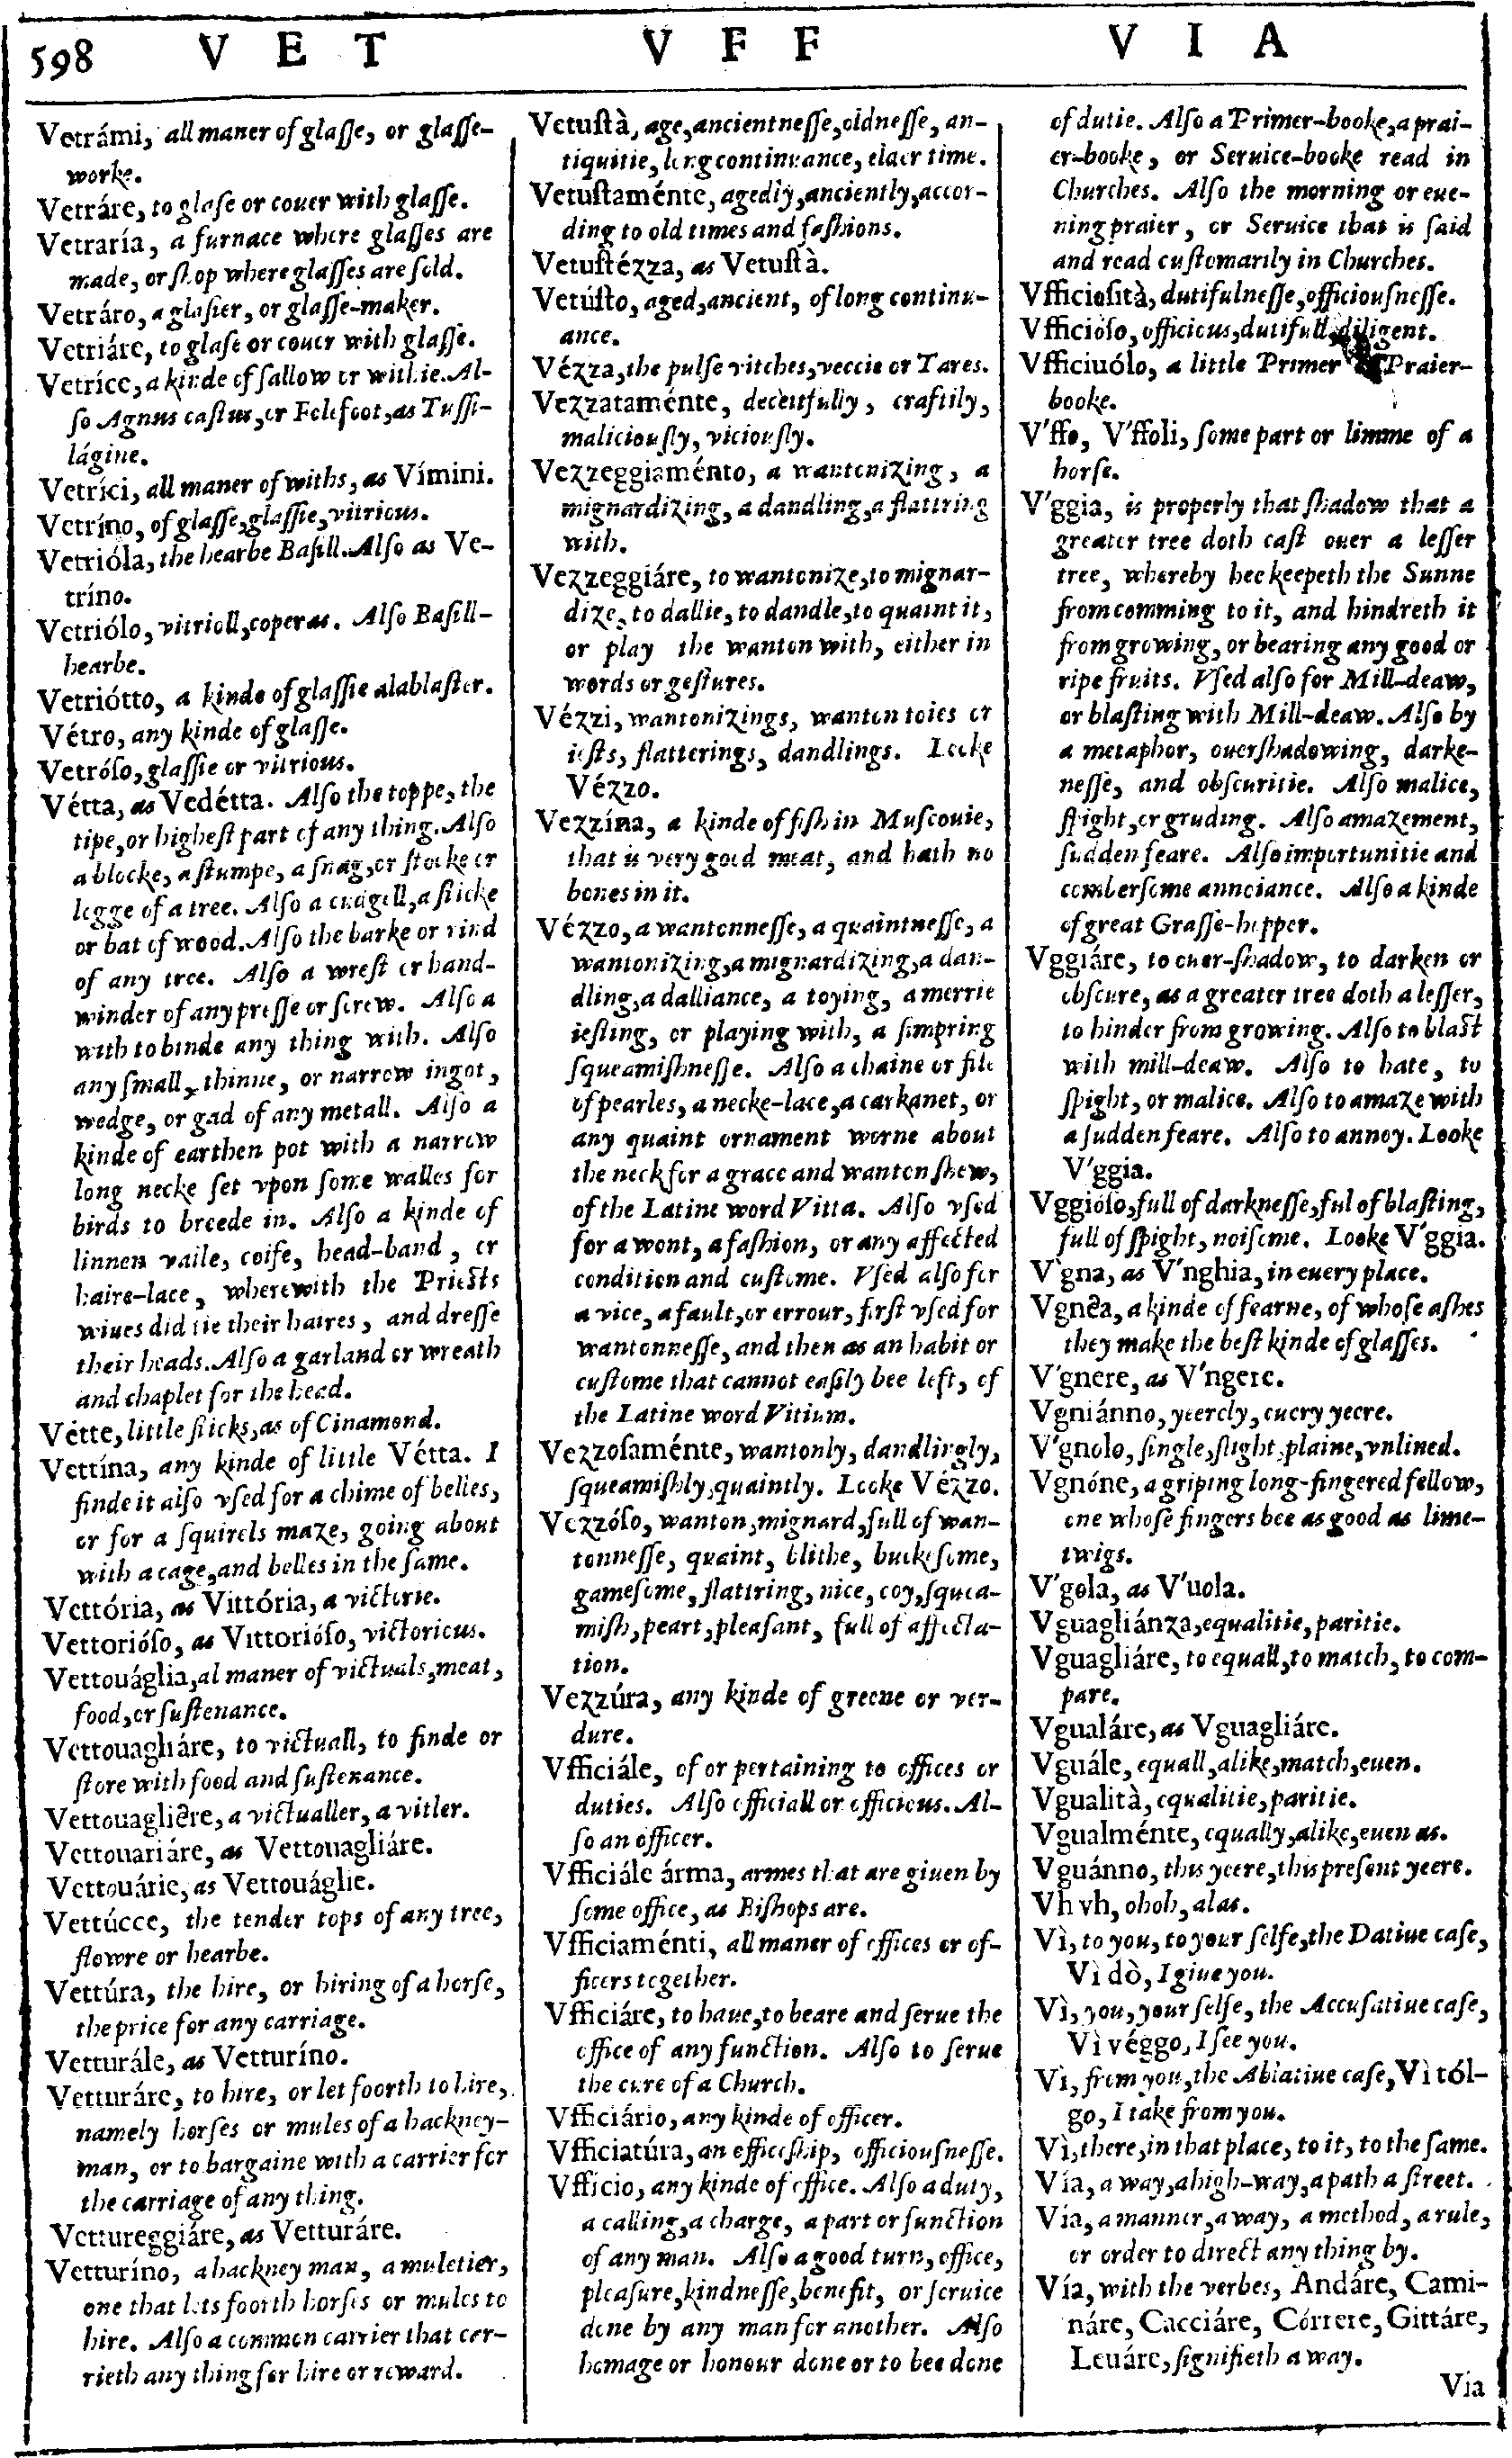 598 VET VFF VIA
Vetrámi, all maner of glaſſe, or glaſſe-
worke.
Vetráre, to glaſe or couer with glaſſe.
Vetraría, a furnace where glaſſes are
made, or ſhop where glaſſes are ſold.
Vetráro, a glaſier, or glaſſe-maker.
Vetriáre, to glaſe or couer with glaſſe.
Vetríce, a kinde of ſallow or withie. Al-
ſo Agnus caſtus, or Folefoot, as Tuſſi-
lágine.
Vetríci, all maner of withs, as Vímini.
Vetríno, of glaſſe, glaſſie, vitrious.
Vetrióla, the hearbe Baſill. Alſo as Ve-
tríno.
Vetriólo, vitrioll, coperas. Alſo Baſill-
hearbe.
Vetriótto, a kinde of glaſſie alablaſter.
Vétro, any kinde of glaſſe.
Vetróſo, glaſſie or vitrious.
Vétta, as Vedétta. Alſo the toppe, the
tipe, or higheſt part of any thing. Alſo
a blocke, a ſtumpe, a ſnag, or ſtocke or
logge of a tree. Alſo a cudgell, a ſticke
or bat of wood. Alſo the barke or rind
of any tree. Alſo a wreſt or hand-
winder of any preſſe or ſcrew. Alſo a
with to binde any thing with. Alſo
any ſmall, thinne, or narrow ingot,
wedge, or gad of any metall. Alſo a
kinde of earthen pot with a narrow
long necke ſet vpon ſome walles for
birds to breede in. Alſo a kinde of
linnen vaile, coife, head-band, or
haire-lace, wherewith the Prieſts
wiues did tie their haires, and dreſſe
their heads. Alſo a garland or wreath
and chaplet for the head.
Vétte, little ſticks, as of Cinamond.
Vettína, any kinde of little Vétta. I
finde it alſo vſed for a chime of belles,
or for a ſquirels maze, going about
with a cage, and belles in the ſame.
Vettória, as Vittória, a victorie.
Vettorióſo, as Vittorióſo, victorious.
Vettouáglia, al maner of victuals, meat,
food, or ſuſtenance.
Vettouagliáre, to victuall, to finde or
ſtore with food and ſuſtenance.
Vettouagliêre, a victualler, a vitler.
Vettouariáre, as Vettouagliáre.
Vettouárie, as Vettouáglie.
Vettúcce, the tender tops of any tree,
flowre or hearbe.
Vettúra, the hire, or hiring of a horſe,
the price for any carriage.
Vetturále, as Vetturíno.
Vetturáre, to hire, or let foorth to hire,
namely horſes or mules of a hackney-
man, or to bargaine with a carrier for
the carriage of any thing.
Vettureggiáre, as Vetturáre.
Vetturíno, a hackney man, a muletier,
one that lets foorth horſes or mules to
hire. Alſo a common carrier that cer-
rieth any thing for hire or reward.
Vetuſtà, age, ancientneſſe, oldneſſe, an-
tiquitie, long continuance, elder time.
Vetuſtaménte, agedly, anciently, accor-
ding to old times and faſhions.
Vetuſtézza, as Vetuſtà.
Vetúſto, aged, ancient, of long continu-
ance.
Vézza, the pulſe vitches, veccie or Tares.
Vezzataménte, deceitfully, craftily,
maliciouſly, viciouſly.
Vezzeggiaménto, a wantonizing, a
mignardizing, a dandling, a flattring
with.
Vezzeggiáre, to wantonize, to mignar-
dize, to dallie, to dandle, to quaint it,
or play the wanton with, either in
words or geſtures.
Vézzi, wantonizings, wanton toies or
ieſts, flatterings, dandlings. Looke
Vézzo.
Vezzína, a kinde of fiſh in Muſcouie,
that is very good meat, and hath no
bones in it.
Vézzo, a wantonneſſe, a quaintneſſe, a
wantonizing, a mignardizing, a dan-
dling, a dalliance, a toying, a merrie
ieſting, or playing with, a ſimpring
ſqueamiſhneſſe. Alſo a chaine or file
of pearles, a necke-lace, a carkanet, or
any quaint ornament worne about
the neck for a grace and wanton ſhew,
of the Latine word Vitta. Alſo vſed
for a wont, a faſhion, or any affected
condition and cuſtome. Vſed alſo for
a vice, a fault, or errour, firſt vſed for
wantonneſſe, and then as an habit or
cuſtome that cannot eaſily bee left, of
the Latine word Vitium.
Vezzoſaménte, wantonly, dandlingly,
ſqueamiſhly, quaintly. Looke Vézzo.
Vezzóſo, wanton, mignard, full of wan-
tonneſſe, quaint, blithe, buckeſome,
gameſome, flattring, nice, coy, ſquea-
miſh, peart, pleaſant, full of affecta-
tion.
Vezzúra, any kinde of greene or ver-
dure.
Vfficiále, of or pertaining to offices or
duties. Alſo officiall or officious. Al-
ſo an officer.
Vfficiále árma, armes that are giuen by
ſome office, as Biſhops are.
Vfficiaménti, all maner of offices or of-
ficers together.
Vfficiáre, to haue, to beare and ſerue the
office of any function. Alſo to ſerue
the cure of a Church.
Vfficiário, any kinde of officer.
Vfficiatúra, an officeſhip, officiouſneſſe.
Vfficio, any kinde of office. Alſo a duty,
a calling, a charge, a part or function
of any man. Alſo a good turn, office,
pleaſure, kindneſſe, benefit, or ſeruice
done by any man for another. Alſo
homage or honour done or to bee done
of dutie. Alſo a Primer-booke, a prai-
er-booke, or Seruice-booke read in
Churches. Alſo the morning or eue-
ning praier, or Seruice that is ſaid
and read cuſtomarily in Churches.
Vfficioſità, dutifulneſſe, officiouſneſſe.
Vfficióſo, officious, dutifull, diligent.
Vfficiuólo, a little Primer Praier-
booke.
V'ffo, V'ffoli, ſome part or limme of a
horſe.
V'ggia, is properly that ſhadow that a
greater tree doth caſt ouer a leſſer
tree, whereby hee keepeth the Sunne
from comming to it, and hindreth it
from growing, or bearing any good or
ripe fruits. Vſed alſo for Mill-deaw,
or blaſting with Mill-deaw. Alſo by
a metaphor, ouerſhadowing, darke-
neſſe, and obſcuritie. Alſo malice,
ſpight, or gruding. Alſo amazement,
ſudden feare. Alſo importunitie and
comberſome annoiance. Alſo a kinde
of great Graſſe-hopper.
Vggiáre, to ouer-ſhadow, to darken or
obſcure, as a greater tree doth a leſſer,
to hinder from growing. Alſo to blaſt
with mill-deaw. Alſo to hate, to
ſpight, or malice. Alſo to amaze with
a ſudden feare. Alſo to annoy. Looke
V'ggia.
Vggióſo, full of darkneſſe, ful of blaſting,
full of ſpight, noiſome. Looke V'ggia.
V'gna, as V'nghia, in euery place.
Vgnêa, a kinde of fearne, of whoſe aſhes
they make the beſt kinde of glaſſes.
V'gnere, as V'ngere.
Vgniánno, yeerely, euery yeere.
V'gnolo, ſingle, ſlight, plaine, vnlined.
Vgnóne, a griping long-fingered fellow,
one whoſe fingers bee as good as lime-
twigs.
V'gola, as V'uola.
Vguagliánza, equalitie, paritie.
Vguagliáre, to equall, to match, to com-
pare.
Vgualáre, as Vguagliáre.
Vguále, equall, alike, match, euen.
Vgualità, equalitie, paritie.
Vgualménte, equally, alike, euen as.
Vguánno, this yeere, this preſent yeere.
Vh vh, ohoh, alas.
Vì, to you, to your ſelfe, the Datiue caſe,
Vì dò, I giue you.
Vì, you, your ſelfe, the Accuſatiue caſe,
Vì véggo, I ſee you.
Vì, from you, the Ablatiue caſe, Vì tól-
go, I take from you.
Vì, there, in that place, to it, to the ſame.
Vía, a way, a high-way, a path a ſtreet.
Vía, a manner, a way, a method, a rule,
or order to direct any thing by.
Vía, with the verbes, Andáre, Cami-
náre, Cacciáre, Córrere, Gittáre,
Leuáre, ſignifieth a way.
Via